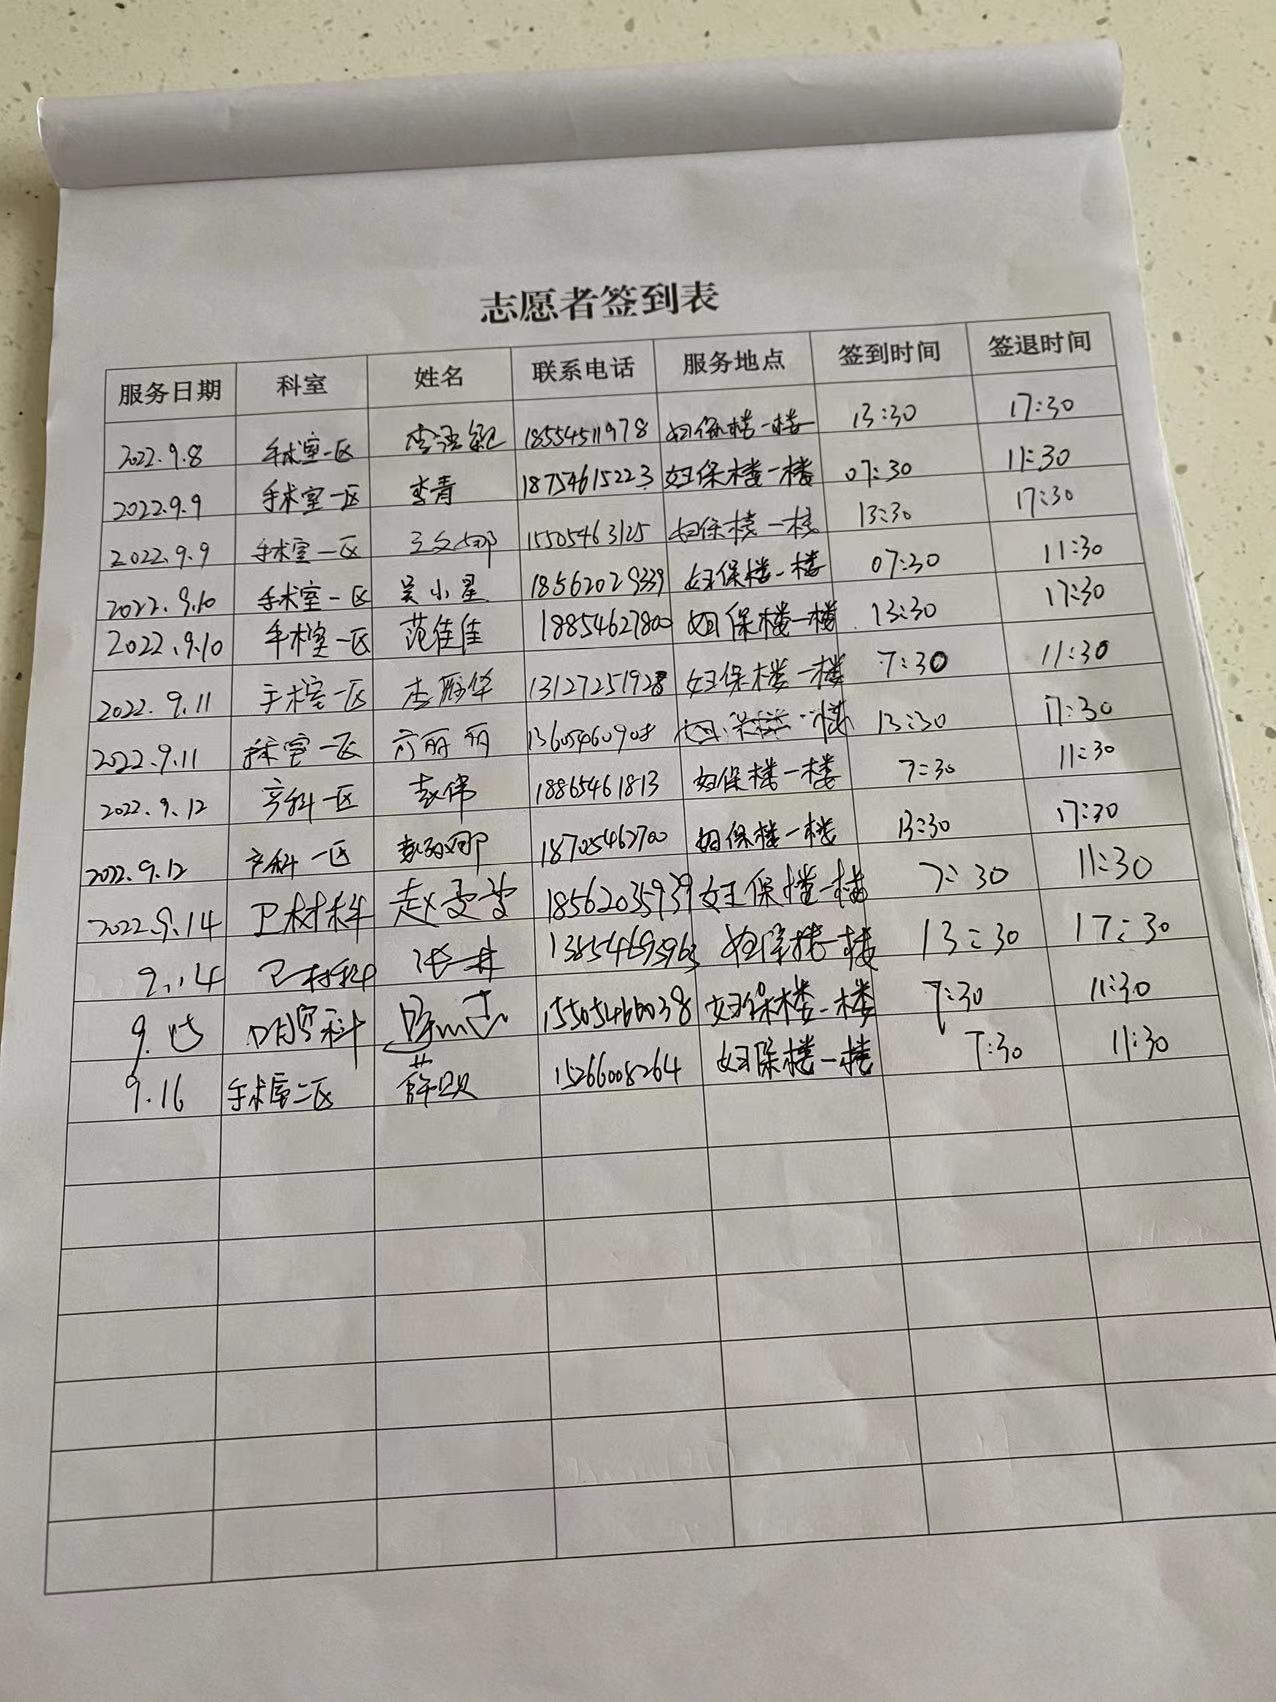 志愿者签到表
服务日期 科室 姓名 联系电话 服务地点 签到时间 签退时间
2022.9.8 手术室一区 18554511978 妇保楼一楼 13:30 17:30
2022.9.9 手术室一区 李青 18754615223 妇保楼一楼 07:30 11:30
2022.9.9 手术室一区 王文娜 15505463125 妇保楼一楼 13:30 17:30
2022.9.10 手术室一区 吴小星 18562029339 妇保楼一楼 07:30 11:30
2022.9.10 手术室一区 范佳佳 18854627800 妇保楼一楼 13:30 17:30
2022.9.11 手术室一区 李丽华 13127251928 妇保楼一楼 7:30 11:30
2022.9.11 手术室一区 13605460908 妇保楼一楼 13:30 17:30
2022.9.12 产科一区 赵伟 18865461813 妇保楼一楼 7:30 11:30
2022.9.12 产科一区 18705462700 妇保楼一楼 13:30 17:30
2022.9.14 卫材科 18562035939 妇保楼一楼 7:30 11:30
9.14 卫材科 妇保楼一楼 13:30 17:30
9.15 15505466038 妇保楼一楼 7:30 11:30
9.16 手术室二区 15266008264 妇保楼一楼 7:30 11:30